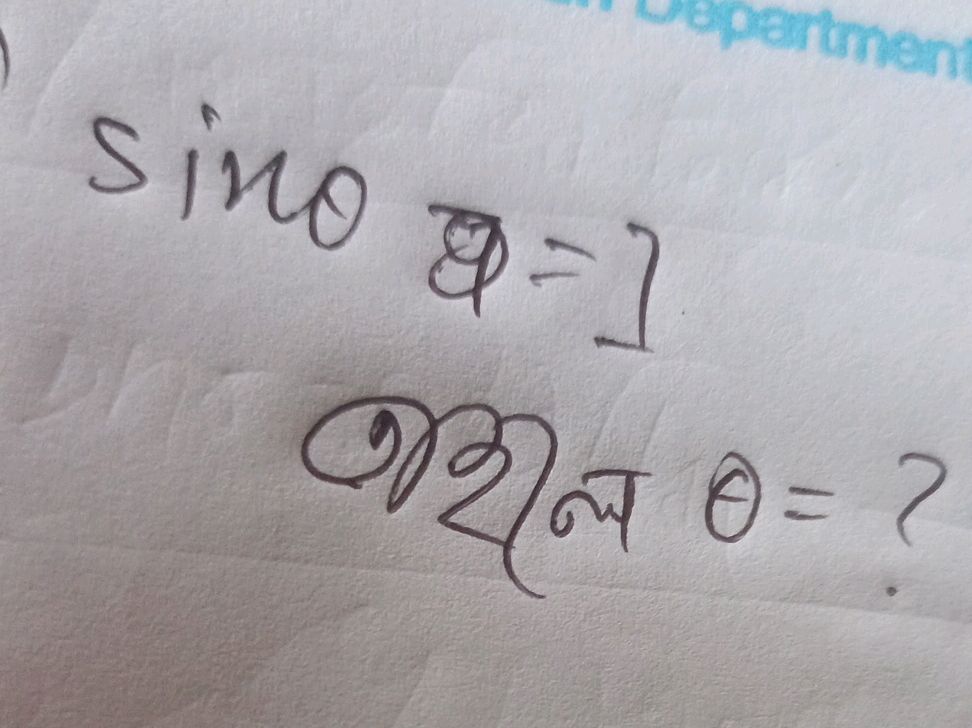 Department
sinθ = 1
তাহলে θ = ?